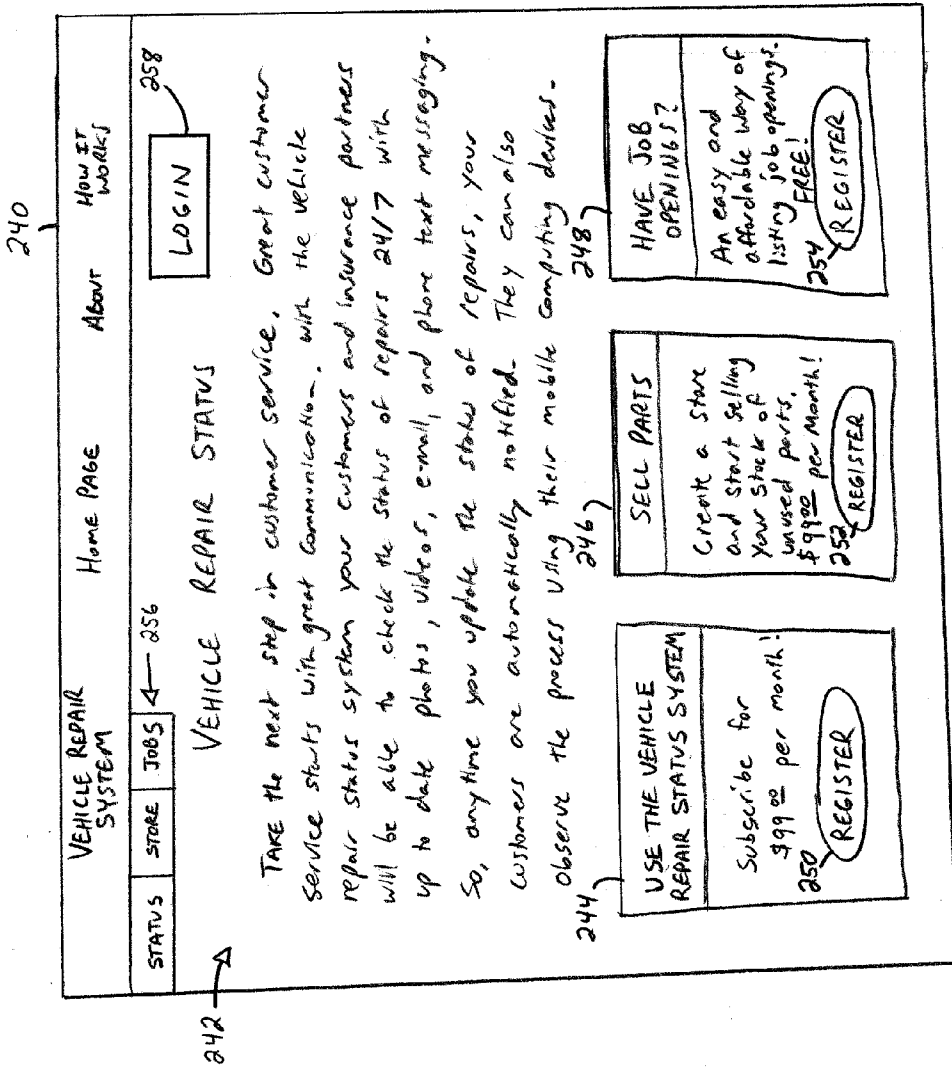 240
VEHICLE REPAIR
SYSTEM
HOME PAGE
ABOUT
HOW IT
WORKS
STATUS
STORE
JOBS
256
LOGIN
258
242
VEHICLE REPAIR STATUS
TAKE the next step in customer service. Great customer
service starts with great communication. with the vehicle
repair status system your customers and insurance partners
will be able to check the status of repairs 24/7 with
up to date photos, videos, e-mail, and phone text messaging.
So, anytime you update the status of repairs, your
customers are automatically notified. They can also
observe the process using their mobile computing devices.
244
USE THE VEHICLE
REPAIR STATUS SYSTEM
Subscribe for
$99 00 per month!
250
REGISTER
246
SELL PARTS
Create a store
and start selling
your stock of
unused parts.
$99 00 per month!
252
REGISTER
248
HAVE JOB
OPENINGS?
An easy and
affordable way of
listing job openings.
FREE!
254
REGISTER